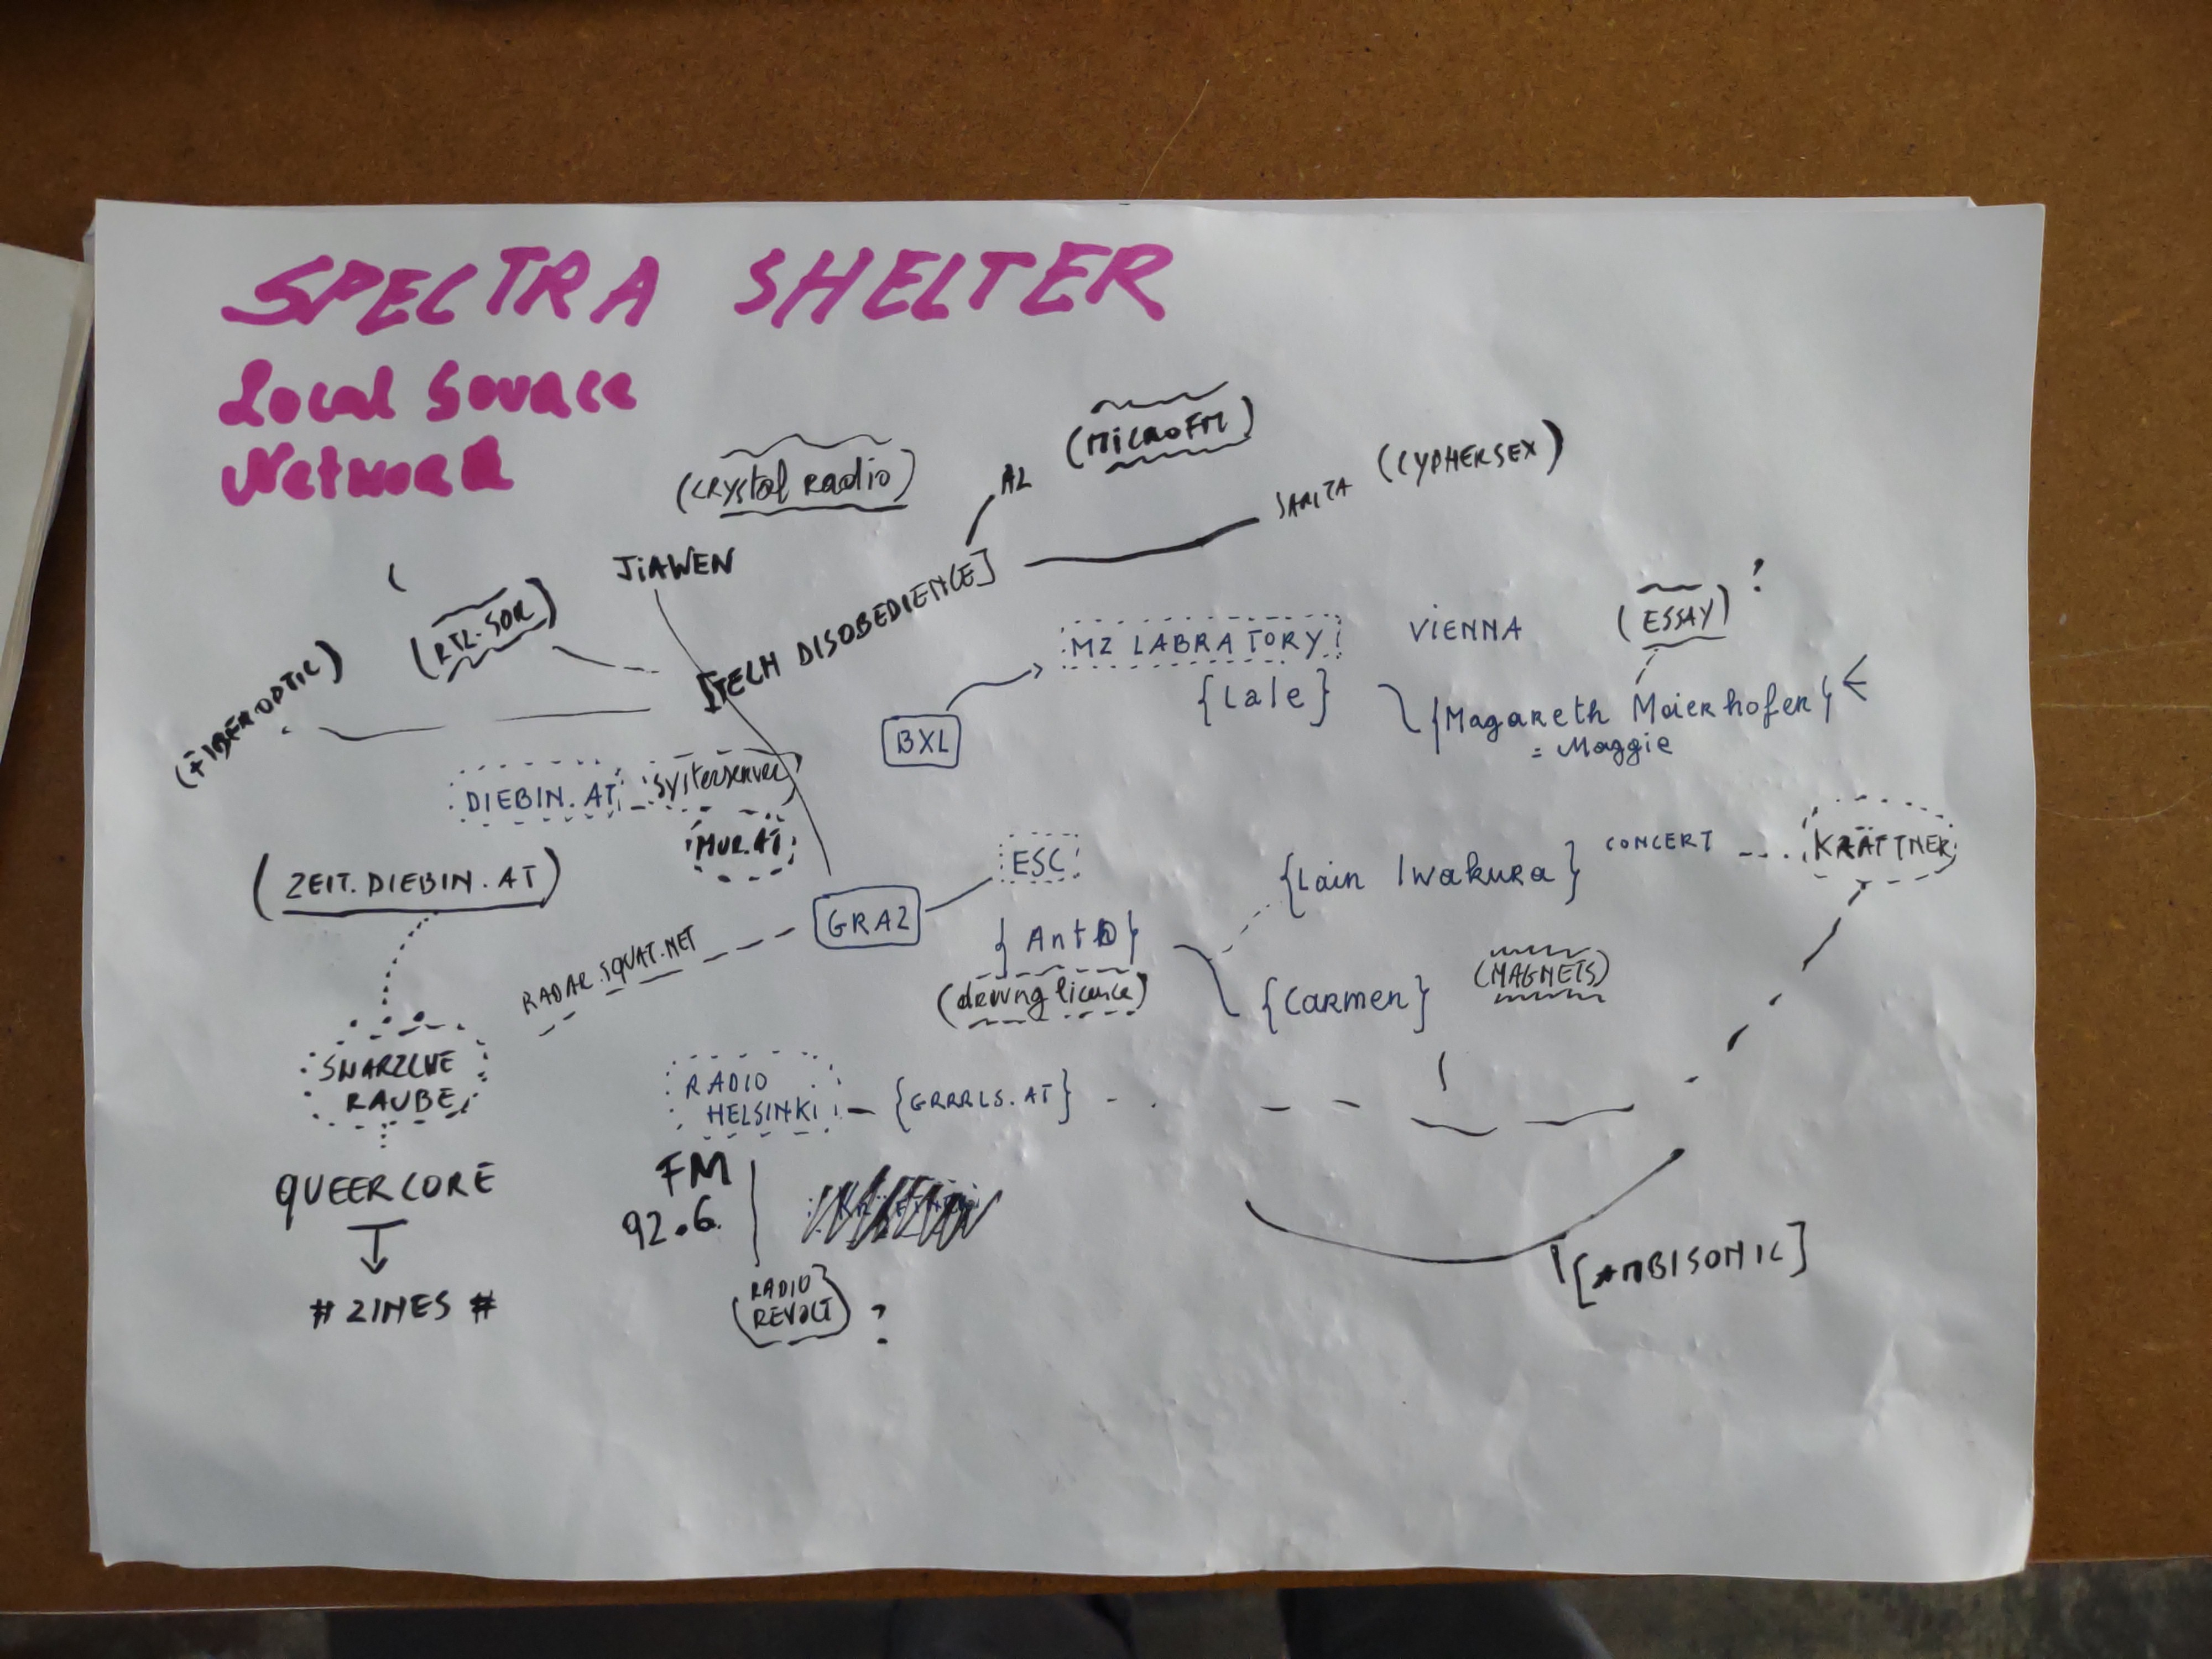 SPECTRA SHELTER
Local Source
Network
(MicroFM)
AL
(CRYStal Radio)
SARITA (CYPHERSEX)
JiAWEN
(RTL-SDR)
[TECH DISOBEDIENCE]
(FIBEROPTIC)
MZ LABRATORY
ViENNA
(ESSAY) ?
{Lale}
{Magareth Maierhofer}
= Maggie
BXL
DIEBIN.AT
systerserver
MUR.AT
(ZEIT.DIEBIN.AT)
ESC
{Lain Iwakura}
CONCERT
KRÄTTNER
GRAZ
RADAR.SQUAT.NET
{Anto}
{Carmen}
(MAGNETS)
SHARZLHE
RAUBE
RADIO
HELSINKI
{GRRRLS.AT}
QUEERCORE
FM
92.6
# ZINES #
RADIO
REVOLT
?
[AMBISONIC]